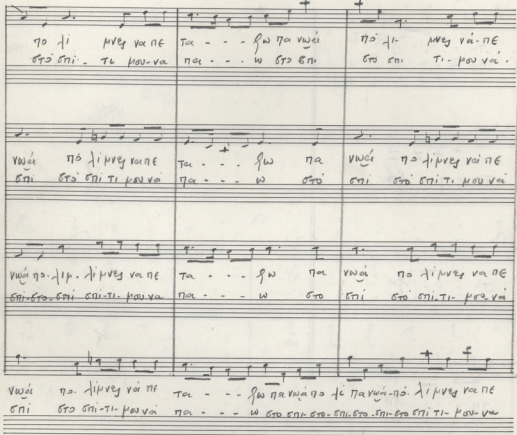 πο λί μνες να πε τα - - - ξω πα νωιά πό λι - μνες νά - πε
στό σπί - τι μου - να πα - - - ω στο σπι στο σπι τι - μου νά -
νωιά πό λίμνες να πε τα - - - ξω πα νωιά πο λίμνες να πε
σπί στό σπί τι μου νά πα - - - ω στό σπί στό σπί τι μου νά
νωιά πο - λιμ - λίμνες να πε τα - - - ξω πα νωιά πο λίμνες να πε
σπι - στο - σπί σπι - τι - μου να πα - - - ω στο σπί στό σπι - τι - μου - νά
νωιά πο - λίμνες νά πε τα - - - ξω πα νωιά πο λί πα νωιά - πό - λίμνες να πε
σπί στο σπι - τι - μου νά πα - - - ω στο σπι - στο - σπι - στο - σπι - στο σπί τι - μου - να